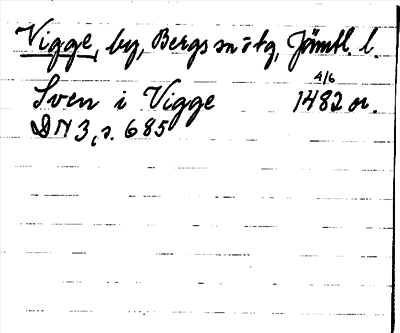 Vigge, by, Bergs sn o tg, Jämtl. l.
4/6
Sven i Vigge 1482 or.
DN 3, s. 685